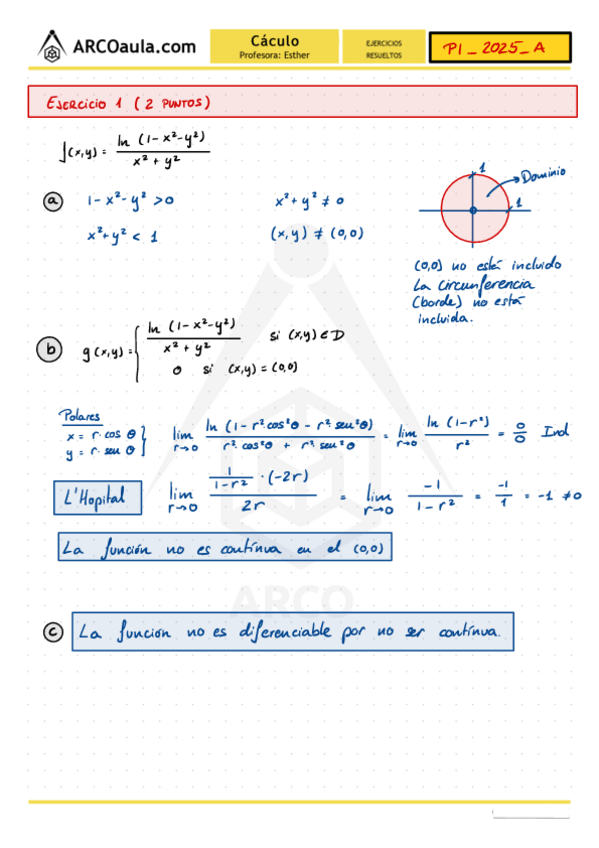 ARCOaula.com
Cáculo
Profesora: Esther
EJERCICIOS
RESUELTOS
P1_2025_A
EJERCICIO 1 (2 PUNTOS)
f(x,y) = ln (1-x²-y²) / x² + y²
a 1-x²-y² >0 x²+y² ≠ 0
x²+y² < 1 (x,y) ≠ (0,0)
1 Dominio
1
(0,0) no está incluido
La circunferencia
(borde) no está
incluida.
b g(x,y) = { ln (1-x²-y²) / x² + y² si (x,y) ∈ D
0 si (x,y) = (0,0)
Polares
x = r·cos θ
y = r·sen θ }
lim r→0 ln (1-r²cos²θ - r²·sen²θ) / r²·cos²θ + r²·sen²θ = lim r→0 ln (1-r²) / r² = 0/0 Ind
L'Hopital lim r→0 1/1-r² ·(-2r) / 2r = lim r→0 -1 / 1-r² = -1/1 = -1 ≠0
La función no es contínua en el (0,0)
ARCO
c La función no es diferenciable por no ser contínua.